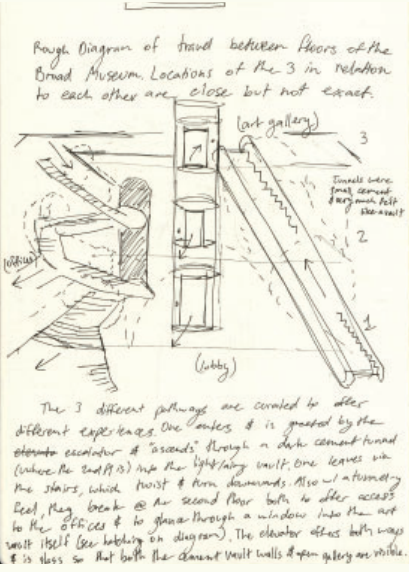 Rough Diagram of travel between floors of the
Broad Museum. Locations of the 3 in relation
to each other are close but not exact.
(art gallery)
3
Tunnels were
small, cement
& very much felt
like a vault
2
(offices)
1
(lobby)
The 3 different pathways are curated to offer
different experiences. One enters & is greeted by the
escalator & "ascends" through a dark cement tunnel
(where the 2nd fl is) into the light/airy vault. One leaves via
the stairs, which twist & turn downwards. Also w/ a tunnely
feel, they break @ the second floor both to offer access
to the offices & to glance through a window into the art
vault itself (see hatching on diagram). The elevator offers both ways
& is glass so that both the cement vault walls & open gallery are visible.